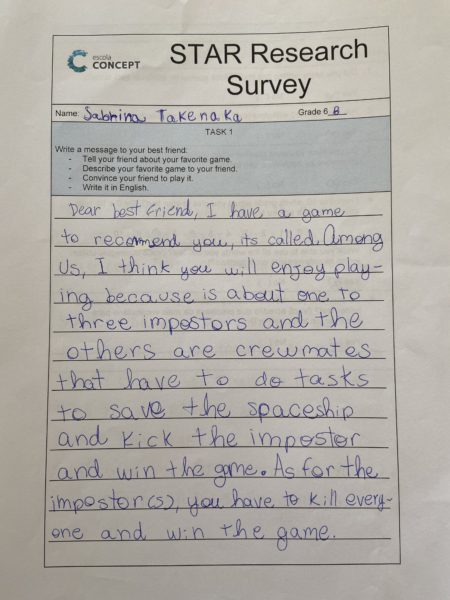 escola
CONCEPT
STAR Research
Survey
Name: Sabrina Takenaka Grade 6 B
TASK 1
Write a message to your best friend:
- Tell your friend about your favorite game.
- Describe your favorite game to your friend.
- Convince your friend to play it.
- Write it in English.
Dear best friend, I have a game
to recommend you, its called Among
Us, I think you will enjoy play-
ing because is about one to
three impostors and the
others are crewmates
that have to do tasks
to save the spaceship
and kick the impostor
and win the game. As for the
impostor(s), you have to kill every-
one and win the game.